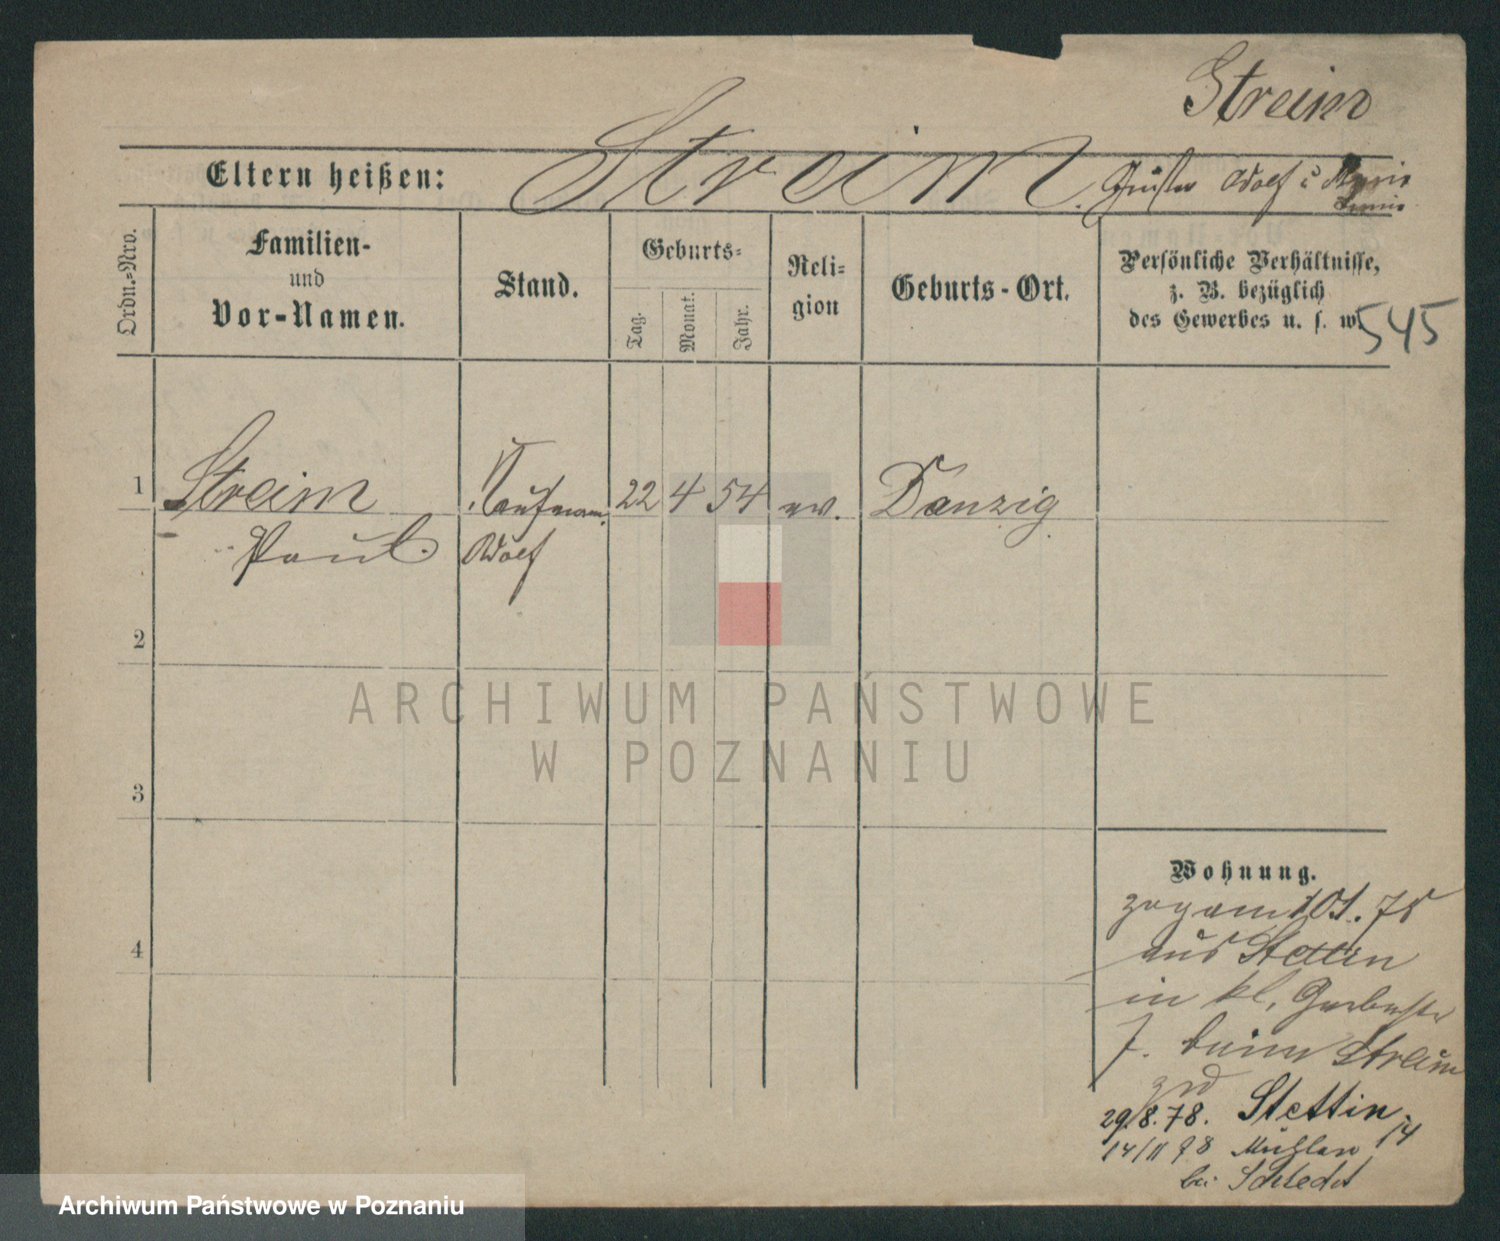 Streim
Eltern heißen: Streim, Gustav Adolf u
Ordn.=Nro.
Familien-
und
Vor-Namen.
Stand.
Geburts=
Tag.
Monat.
Jahr.
Reli=
gion
Geburts-Ort.
Persönliche Verhältnisse,
z. B. bezüglich
des Gewerbes u. s. w.
545
1 Streim Kaufmann 22 4 54 ev. Danzig
Paul Adolf
2
3
4
Wohnung.
aus Stettin
in kl. Gerberstr
7. beim Streim
29/8.78. Stettin
14/11 78 Mühlen 14
bei Schlecht
ARCHIWUM PAŃSTWOWE
W POZNANIU
Archiwum Państwowe w Poznaniu